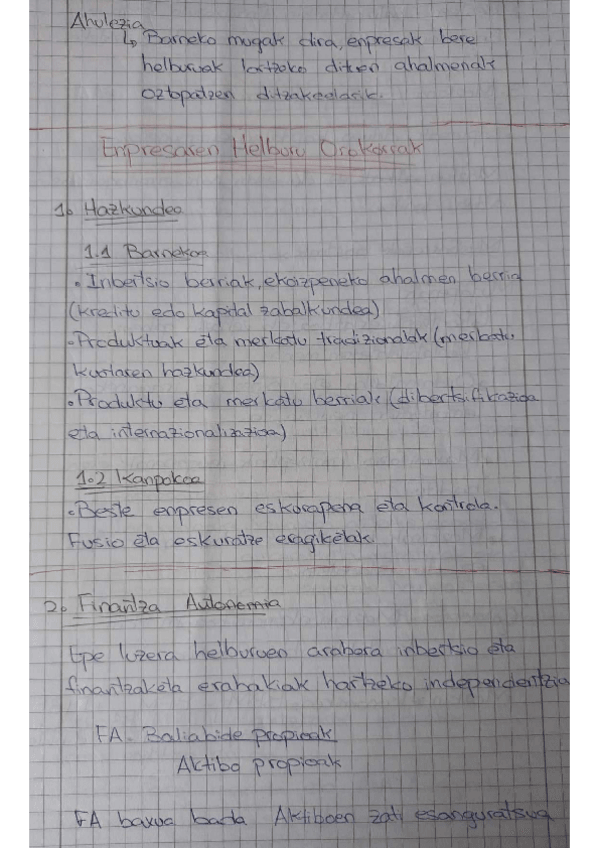 Ahulezia
↳ Barneko mugak dira, enpresak bere
helburuak lortzeko dituen ahalmenak
oztopatzen ditzakeelarik.
Enpresaren Helburu Orokorrak
1. Hazkundea
1.1 Barnekoa
• Inbertsio berriak, ekoizpeneko ahalmen berria
(kreditu edo kapital zabalkundea)
• Produktuak eta merkatu tradizionalak (merkatu
kuotaren hazkundea)
• Produktu eta merkatu berriak (dibertsifikazioa
eta internazionalizazioa)
1.2 Kanpokoa
• Beste enpresen eskurapena eta kontrola.
Fusio eta eskuratze eragiketak.
2. Finantza Autonomia
Epe luzera helburuen arabera inbertsio eta
finantzaketa erabakiak hartzeko independentzia
FA = Baliabide propioak
Aktibo propioak
FA baxua bada Aktiboen zati esanguratsua